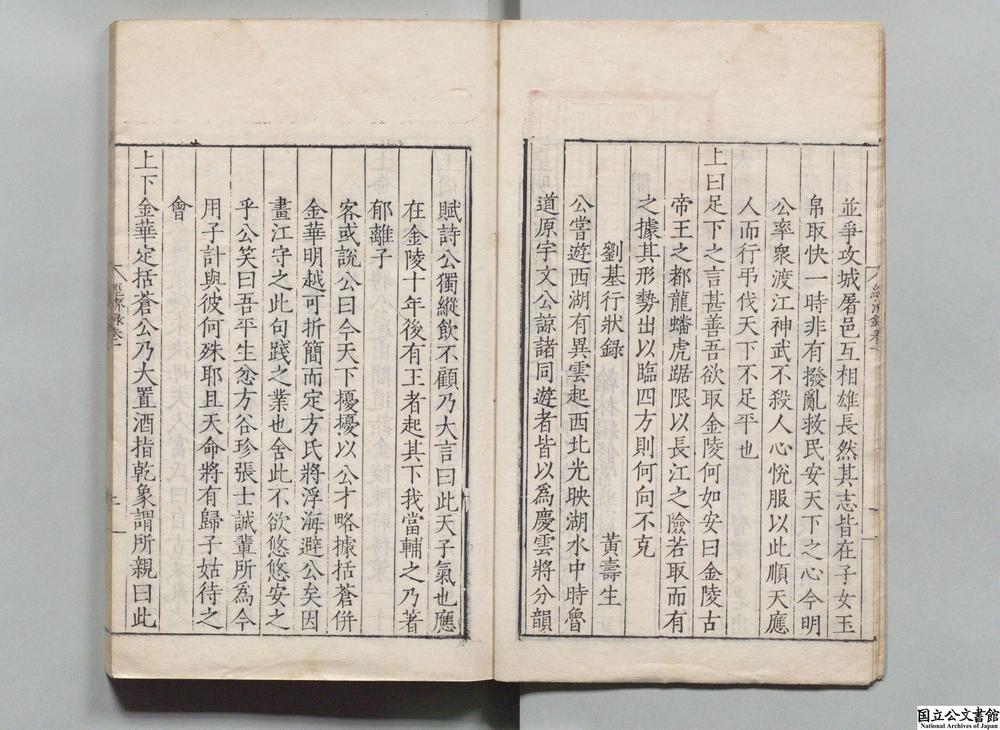 並爭攻城屠邑互相雄長然其志皆在子女玉
帛取快一時非有撥亂救民安天下之心今明
公率衆渡江神武不殺人心悅服以此順天應
人而行弔伐天下不足平也
上曰足下之言甚善吾欲取金陵何如安曰金陵古
帝王之都龍蟠虎踞限以長江之險若取而有
之據其形勢出以臨四方則何向不克
劉基行狀錄 黃壽生
公嘗遊西湖有異雲起西北光映湖水中時魯
道原宇文公諒諸同遊者皆以爲慶雲將分韻
賦詩公獨縱飲不顧乃大言曰此天子氣也應
在金陵十年後有王者起其下我當輔之乃著
郁離子
客或說公曰今天下擾擾以公才略據括蒼併
金華明越可折簡而定方氏將浮海避公矣因
畫江守之此句踐之業也舍此不欲悠悠安之
乎公笑曰吾平生忿方谷珍張士誠輩所爲今
用子計與彼何殊耶且天命將有歸子姑待之
會
上下金華定括蒼公乃大置酒指乾象謂所親曰此
國立公文書館
National Archives of Japan